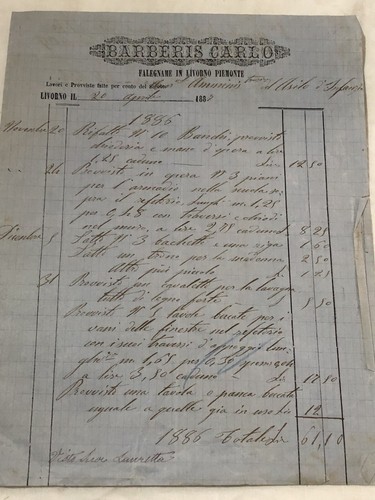 BARBERIS CARLO
FALEGNAME IN LIVORNO PIEMONTE
Lavori e Provviste fatte per conto del Amminis d'Asilo d'Infanzia
LIVORNO IL 20 Agosto 1887
1886
Novembre 20 Rifatti N° 10 Banchi, provvista
d'uderia e mano d'opera a lire
1,25 caduno L. 12 50
26 Provvisti in opera N° 3 piani
per l'armadio nella scuola
pra il refettorio lunghi m 1,25
per 0,48 con traversi e chiodi
nel muro, a lire 2,75 caduno L. 8 25
Dicembre 5 Fatti N° 3 bachette e una riga 1 60
Fatti un trono per la madonna 2 50
Altro più piccolo L. 1 75
31 Provvisti un cavaletti per la lavagna
tutti di legno forte 5 50
Provvisti N° 5 tavole bucate per i
vani delle finestre nel refettorio
con i suoi traversi d'appoggio lun
ghi m 1,65 per 0,30
a lire 3,50 caduno L. 17 50
Provvisti una tavola e panca bucata
uguale a quelle già in uso L. 12
1886 Totale L. 61,10
Visto Suor Lauretta